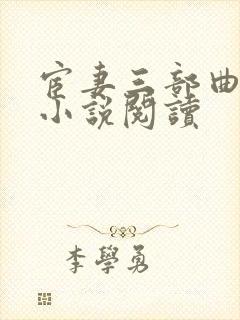 宦妻三部曲
小說閱讀
李學勇